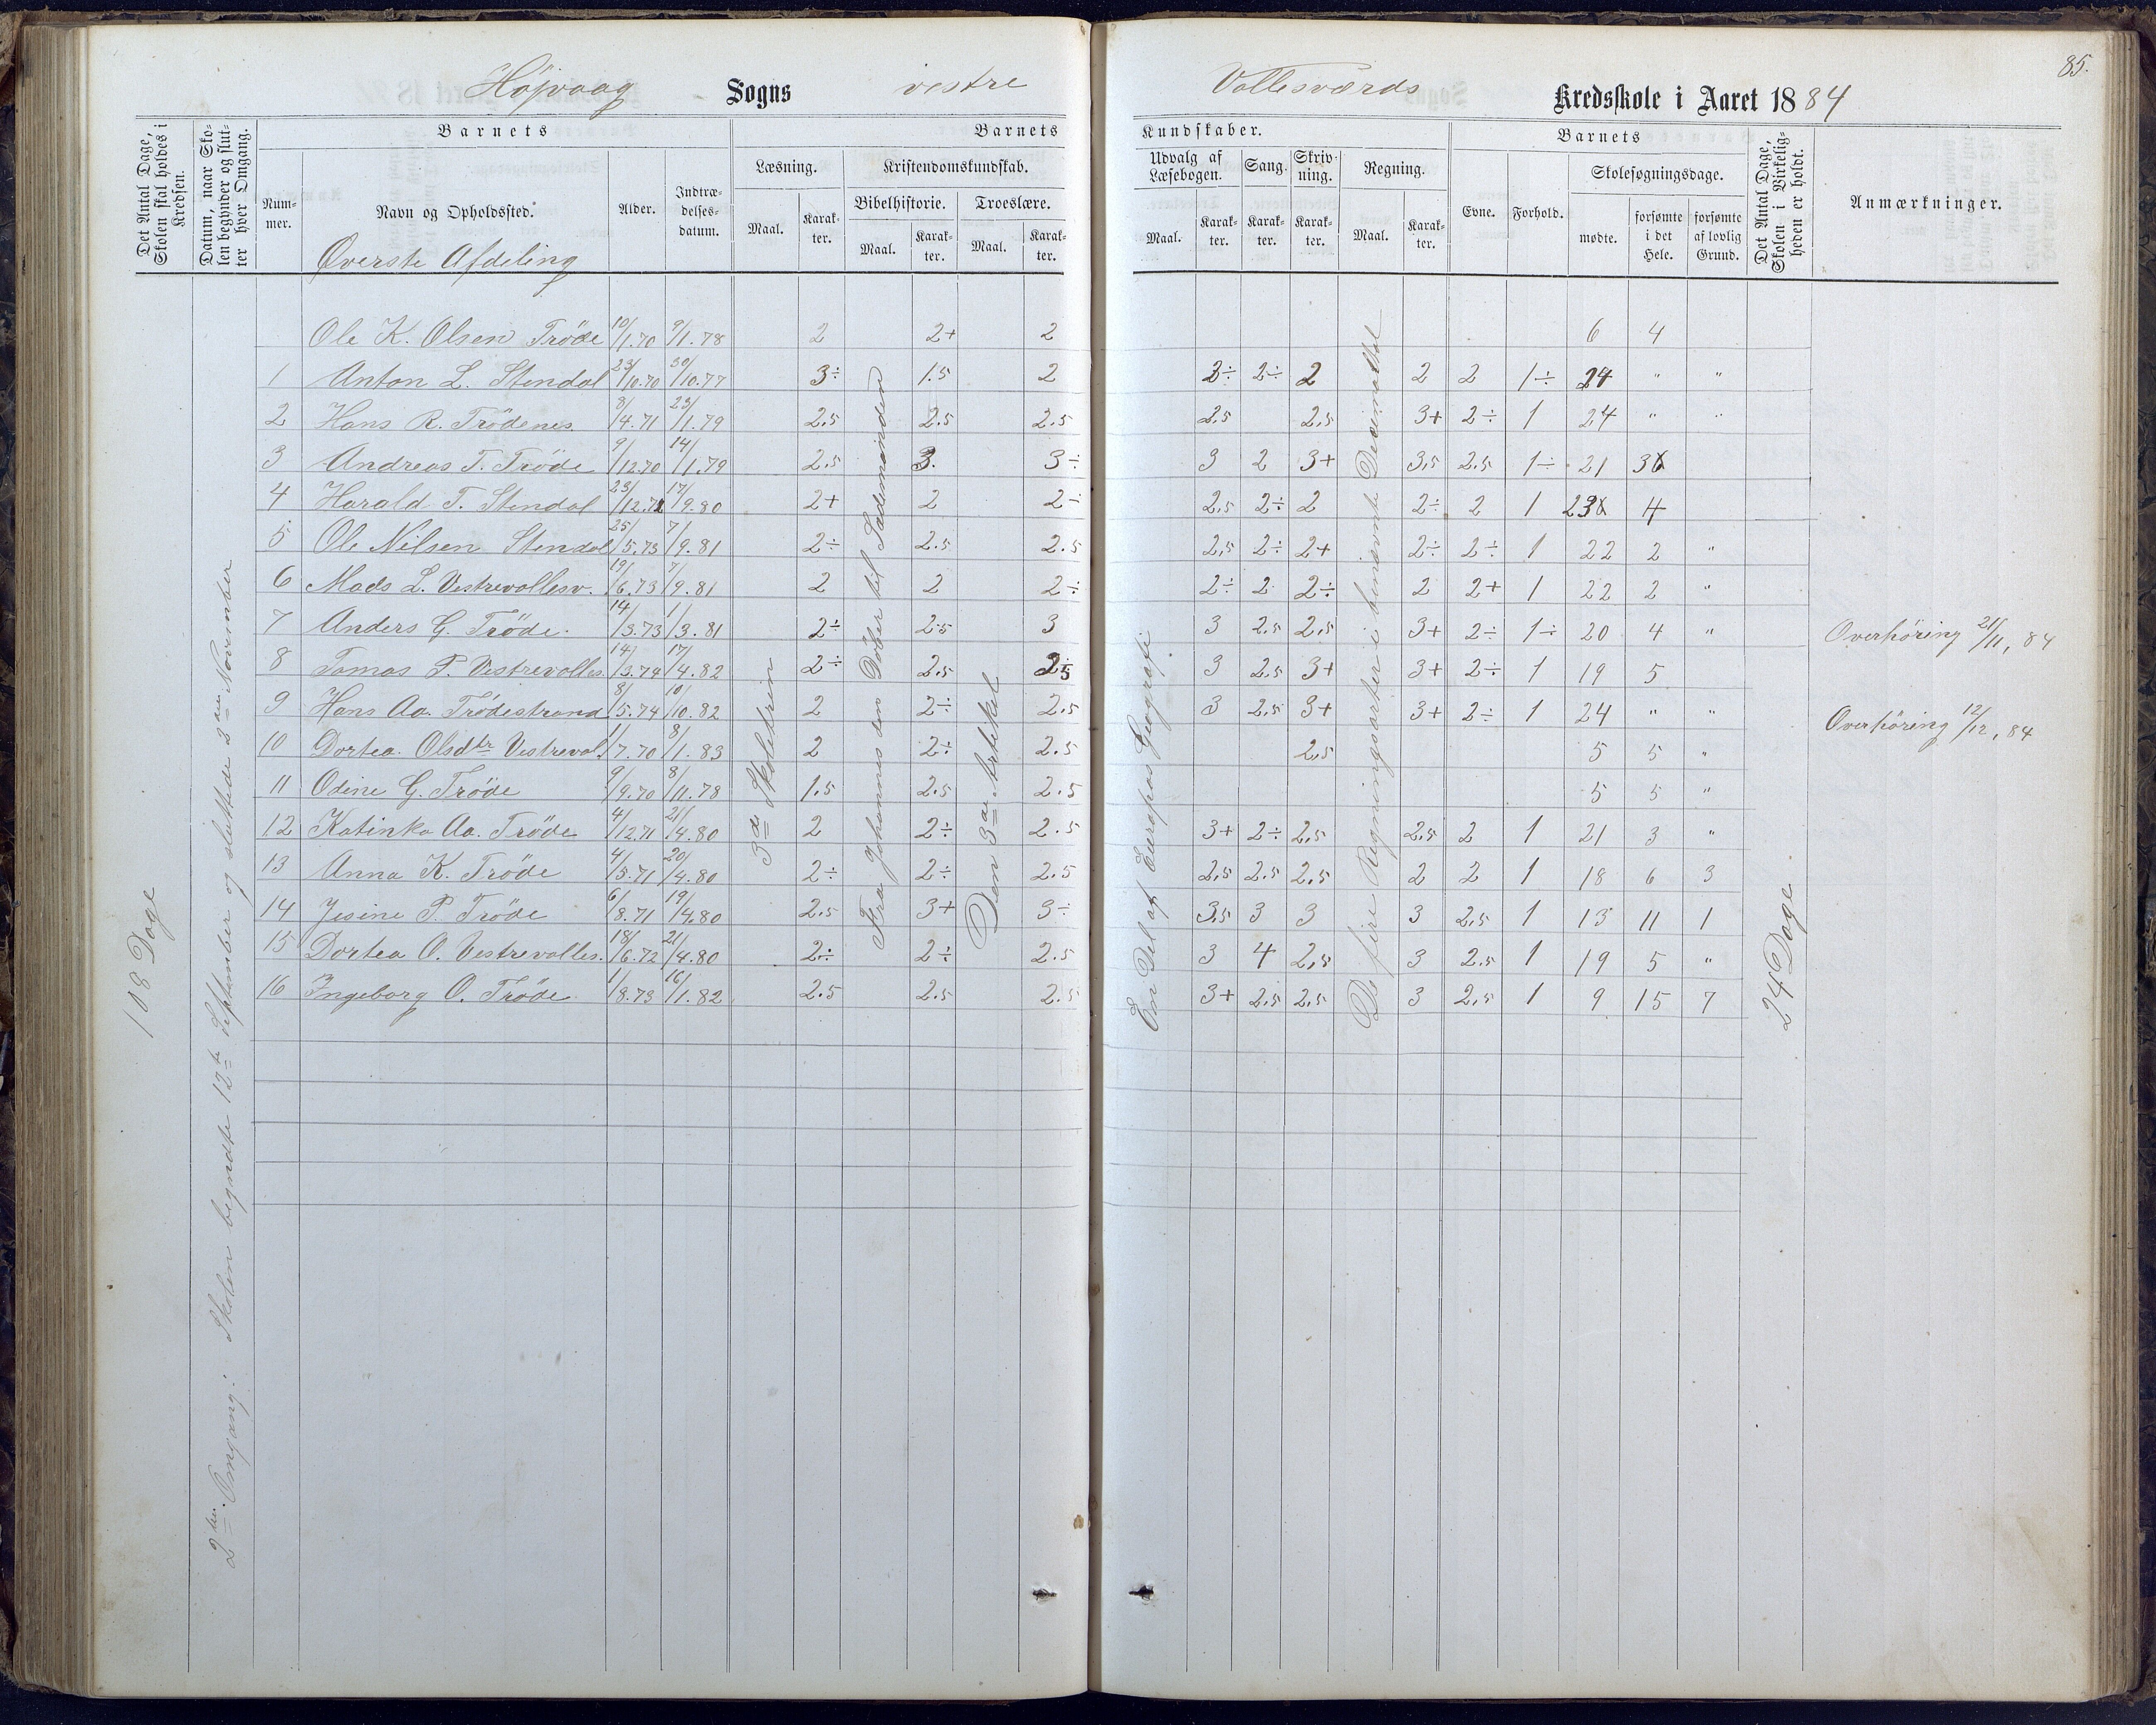 85.
Højvaag Sogns vestre Vallesværds Kredsskole i Aaret 1884
Det Antal Dage, Skolen skal holdes i Kredsen.
Datum, naar Skolen begynder og slutter hver Omgang.
Barnets
Nummer.
Navn og Opholdssted.
Alder.
Indtrædelsesdatum.
Barnets Kundskaber.
Læsning.
Maal.
Karakter.
Kristendomskundskab.
Bibelhistorie.
Maal.
Karakter.
Troeslære.
Maal.
Karakter.
Udvalg af Læsebogen.
Maal.
Karakter.
Sang.
Karakter.
Skrivning.
Karakter.
Regning.
Maal.
Karakter.
Barnets
Evne.
Forhold.
Skolesøgningsdage.
mødte.
forsømte i det Hele.
forsømte af lovlig Grund.
Det Antal Dage, Skolen i Virkeligheden er holdt.
Anmærkninger.
Øverste Afdeling
Ole K. Olsen Trøde 10/1.70 9/1.78 2 2+ 2 6 4
1 Anton L. Stendal 23/10.70 30/10.77 3÷ 1.5 2 2÷ 2÷ 2 2 2 1÷ 24 " "
2 Hans R. Trødenes. 8/4.71 23/1.79 2.5 2.5 2.5 2.5 2,5 3+ 2÷ 1 24 " "
3 Andreas T. Trøde 9/12.70 14/1.79 2.5 3. 3÷ 3 2 3+ 3,5 2.5 1÷ 21 3
4 Harald T. Stendal 23/12.71 17/9.80 2+ 2 2÷ 2,5 2÷ 2 2÷ 2 1 23 4
5 Ole Nilsen Stendal 25/5.73 7/9.81 2÷ 2.5 2.5 2,5 2÷ 2+ 2÷ 2÷ 1 22 2 "
6 Mads L. Vestrevallesv. 19/6.73 7/9.81 2 2 2÷ 2÷ 2 2÷ 2 2+ 1 22 2 "
7 Anders G. Trøde. 14/3.73 1/3.81 2÷ 2.5 3 3 2,5 2,5 3+ 2÷ 1÷ 20 4 " Overhøring 21/11, 84
8 Tomas P. Vestrevalles. 14/3.74 17/4.82 2÷ 2.5 2.5 3 2.5 3+ 3+ 2÷ 1 19 5
9 Hans Aa. Trødestrand 8/5.74 10/10.82 2 2÷ 2.5 3 2,5 3+ 3+ 2÷ 1 24 " " Overhøring 12/12, 84
10 Dortea Olsdtr Vestreval. 1/7.70 8/1.83 2 2÷ 2.5 2,5 5 5 "
11 Odine G. Trøde 9/9.70 8/11.78 1.5 2.5 2.5 5 5 "
12 Katinka Aa. Trøde 4/12.71 21/4.80 2 2÷ 2.5 3+ 2÷ 2,5 2,5 2 1 21 3 "
13 Anna K. Trøde 4/5.71 20/4.80 2÷ 2÷ 2.5 2,5 2.5 2,5 2 2 1 18 6 3
14 Jesine P. Trøde 6/8.71 19/4.80 2.5 3+ 3÷ 3,5 3 3 3 2,5 1 13 11 1
15 Dortea O. Vestrevalles. 18/6.72 21/4.80 2÷ 2÷ 2.5 3 4 2,5 3 2.5 1 19 5 "
16 Ingeborg O. Trøde. 1/8.73 16/1.82 2.5 2.5 2.5 3+ 2,5 2,5 3 2,5 1 9 15 7
108 Dage
2den Omgang: Skolen begyndte 12te September og sluttede 2den November
3de Skoletrin
Fra Johannes den Døber til Sædemanden
Den 3die Artikel
En Del af Europas Geografi.
De fire Regningsarter i benævnte Decimaltal
24 Dage